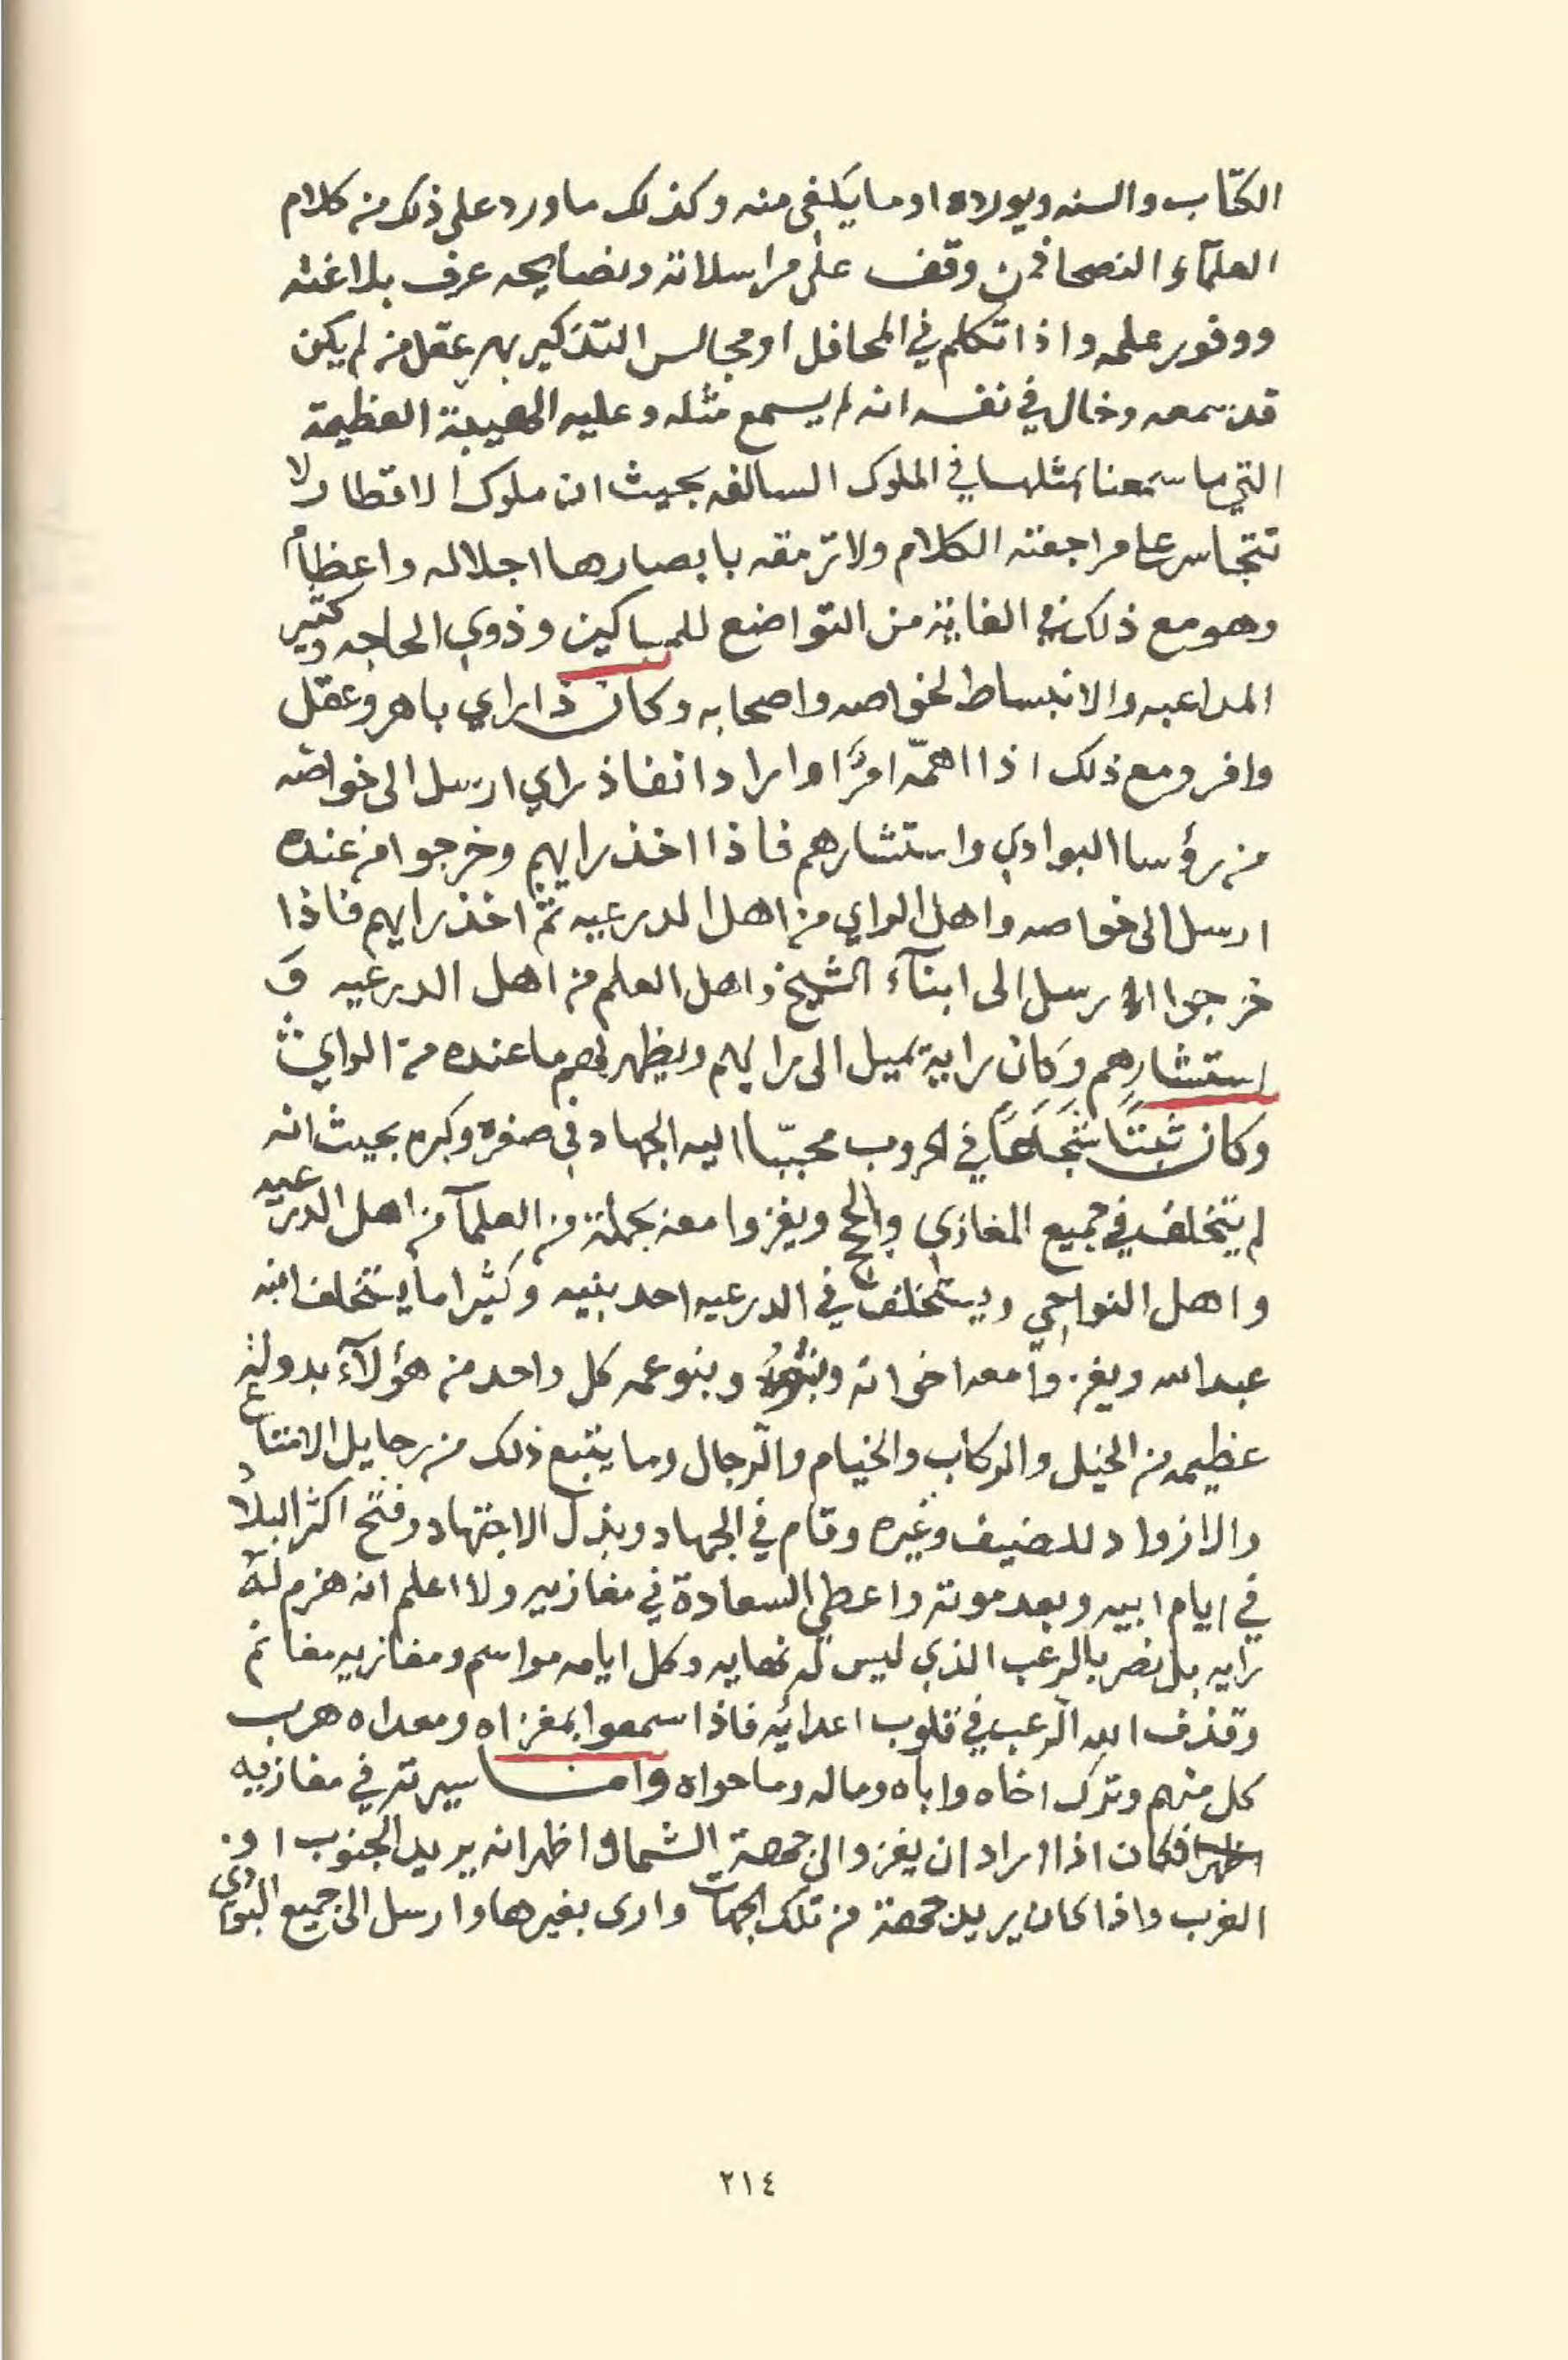 الكتاب والسنه ويورده او ما يكفي منه وكذلك ما ورد على ذلك من كلام
العلمآء النصحا فمن وقف على مراسلاته ونصايحه عرف بلاغته
ووفور علمه واذا تكلم في المحافل او مجالس التذكير بهر عقل من لم يكن
قد سمعه وخال في نفسه انه لم يسمع مثله وعليه الهيبة العظيمة
التي ما سمعنا بمثلها في الملوك السالفه بحيث ان ملوك الاقطار لا
تتجاسر على مراجعته الكلام ولا ترمقه بابصارها اجلاله واعظاماً
وهو مع ذلك في الغاية من التواضع للمساكين وذوي الحاجه وكثير
المداعبه والانبساط لخواصه واصحابه وكان ذا راي باهر وعقل
وافر ومع ذلك اذا اهمّه امرًا او اراد انفاذ راي ارسل الى خواصّه
من رؤسا البوادي واستشارهم فاذا اخذ رايهم وخرجوا من عنده
ارسل الى خواصه واهل الراي من اهل الدرعيه ثمّ اخذ رايهم فاذا
خرجوا ارسل الى ابنآء الشيخ واهل العلم من اهل الدرعيه وَ
استشارهم وكان رايه يميل الى رايهم ويظهر لهم ما عنده من الراي
وكان ثبتًا شجاعًا في الحروب محببّا اليه الجهاد في صغره وكبره بحيث انه
لم يتخلف في جميع المغازي والحج ويغزوا معه بجملة من العلمآ من اهل الدرعيه
واهل النواحي ويستخلف في الدرعيه احد بنيه وكثيرا ما يستخلف ابنه
عبدالله ويغزوا معه اخوانه وبنوه وبنو عمه كل واحد من هؤلآء بدولة
عظيمه من الخيل والركاب والخيام والرّجال وما يتبع ذلك من رحايل الامتاع
والازواد للضيف وغيره وقام في الجهاد وبذل الاجتهاد وفتح اكثر البلاد
في ايام ابيه وبعد موته واعطي السعادة في مغازيه ولا اعلم انه هزم له
رايه بل نصر بالرعب الذي ليس له نهايه وكل ايامه مواسم ومغازيه مغانم
وقذف الله الرّعب في قلوب اعدائه فاذا سمعوا بمغزاه ومعداه هرب
كل منهم وترك اخاه واباه وماله وما حواه وامـا سيرته في مغازيه
فكان اذا اراد ان يغزو الى جهة الشمال اظهر انه يريد الجنوب او
الغرب واذا كان يريد جهة من تلك الجهات وارى بغيرها وارسل الى جميع البوادي
٢١٤